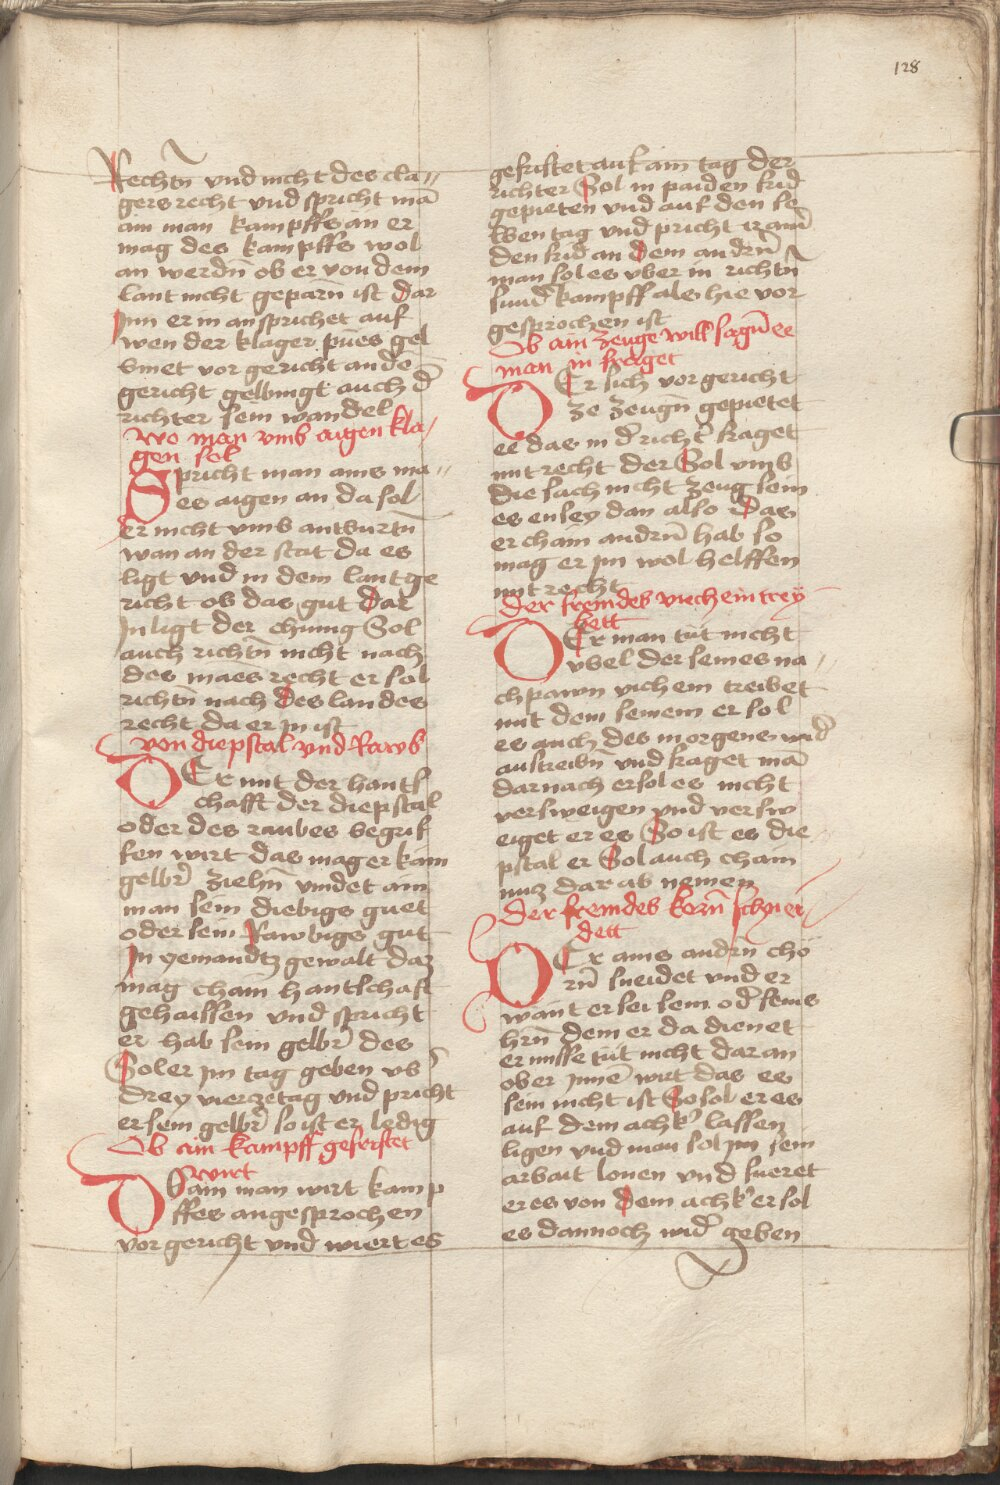 128
Rechtn̄ vnd nicht des cla-
gers recht vnd spricht mā
ain man kampffs an er
mag des kampffs wol
an werdn̄ ob er von dem
lant nicht geparn̄ ist dar
Inn er in an sprichet auf
wen der klager pues gel
binet vor gericht an dē
gericht gelbingt auch d̄
richter sein wandel
wo man vmb aigen kla-
gen sol
Spricht man ains ma-
es aigen an da sol
er nicht vmb antburtn̄
wan an der stat da es
ligt vnd in dem lantge
richt ob das gut dar
In ligt der chunig Sol
auch richtn̄ nicht nach
des maes recht er sol
richtn̄ nach des landes
recht da er in ist
von diepstal vnd Rawb
DEr mit der hantt
schafft der diepstal
oder des raubes begrif
fen wirt das mag er kain
gelbr̄ ziehn̄ vindet ain
man sein diebigs guet
oder sein Rawbigs gut
In yemandtz gewalt daz
mag chain hantschaft
gehaissen vnd spricht
er hab sein gelbr̄ des
Sol er im tag geben vb̄
drey vierzetag vnd pricht
er sein gelbr̄ so ist er ledig
Ob ain kampff gefristet
wirt
Ob ain man wirt kamp
ffes angesprochen
vor gericht vnd wiert es
gefristet auf ain tag der
richter Sol in paiden frid
gepieten vnd auf den se
lben tag vnd pricht ir ainr̄
den frid an dem andrn̄
man sol es vber in richtn̄
sund̄ kampff als hie vor
gesprochen ist
Ob ain zeuge will sagn̄ ee
man in fraget
DEr sich vor gericht
ze zeugn̄ gepietet
ee das in d̄ richt̄ fraget
mit recht der Sol vmb
die sach nicht zeug sein
es ensey dan also Das
er chain andrn̄ hab so
mag er im wol helffen
mit recht
der fremdes viech eintrey
bett
DEr man tut nicht
vbel der seines na-
chpawn vich ein treibet
mit dem seinem er sol
es auch des morgens wid̄
austreibn̄ vnd fraget mā
darnach er sol es nicht
versweigen vnd versw
eiget er es So ist es die
pstal er Sol auch chain
nuz dar ab nemen
der fremdes korn̄ schnei
dett
DEr ains andrn̄ cho
rn̄ sneidet vnd er
want er sei sein od̄ seins
hrn̄ dem er da dienet
er misse tut nicht daran
ob er innē wirt das es
sein nicht ist So sol er es
auf dem ackr̄ lassen
ligen vnd man sol im sein
arbait lonen vnd fueret
er es von dem ackr̄ er sol
es dannoch wid̄ geben